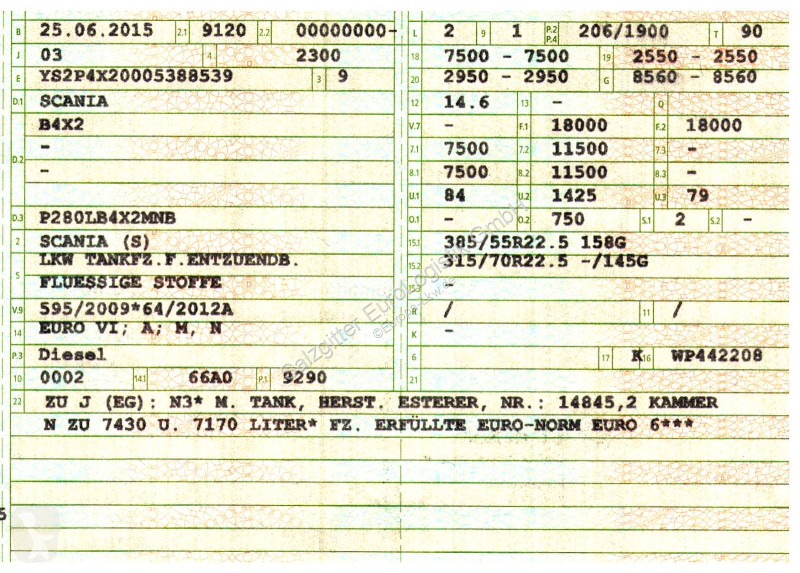 B 25.06.2015 2.1 9120 2.2 00000000-
J 03 4 2300
E YS2P4X20005388539 3 9
D.1 SCANIA
B4X2
-
D.2 -
D.3 P280LB4X2MNB
2 SCANIA (S)
LKW TANKFZ.F.ENTZUENDB.
5 FLUESSIGE STOFFE
V.9 595/2009*64/2012A
14 EURO VI; A; M, N
P.3 Diesel
10 0002 14.1 66A0 P.1 9290
L 2 9 1 P.2 P.4 206/1900 T 90
18 7500 - 7500 19 2550 - 2550
20 2950 - 2950 G 8560 - 8560
12 14.6 13 - Q
V.7 - F.1 18000 F.2 18000
7.1 7500 7.2 11500 7.3 -
8.1 7500 8.2 11500 8.3 -
U.1 84 U.2 1425 U.3 79
O.1 - O.2 750 S.1 2 S.2 -
15.1 385/55R22.5 158G
15.2 315/70R22.5 -/145G
15.3 -
R / 11 /
K -
6 17 K 16 WP442208
21
22 ZU J (EG): N3* M. TANK, HERST. ESTERER, NR.: 14845,2 KAMMER
N ZU 7430 U. 7170 LITER* FZ. ERFÜLLTE EURO-NORM EURO 6***
5
Salzgitter EuroLogistik GmbH